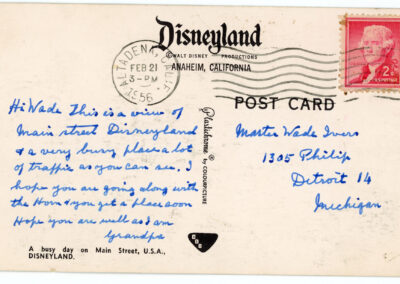 Disneyland
WALT DISNEY PRODUCTIONS
ANAHEIM, CALIFORNIA
ALTADENA, CALIF.
FEB 21
3-PM
1956
2¢
POST CARD
Hi Wade This is a view of
Main street Disneyland
& a very busy place a lot
of traffic as you can see. I
hope you are going along with
the Horn & you get a place soon
Hope you are well as I am
Grandpa
Plastichrome ® by COLOURPICTURE
Master Wade Ivers
1305 Philip
Detroit 14
Michigan
A busy day on Main Street, U.S.A.,
DISNEYLAND.